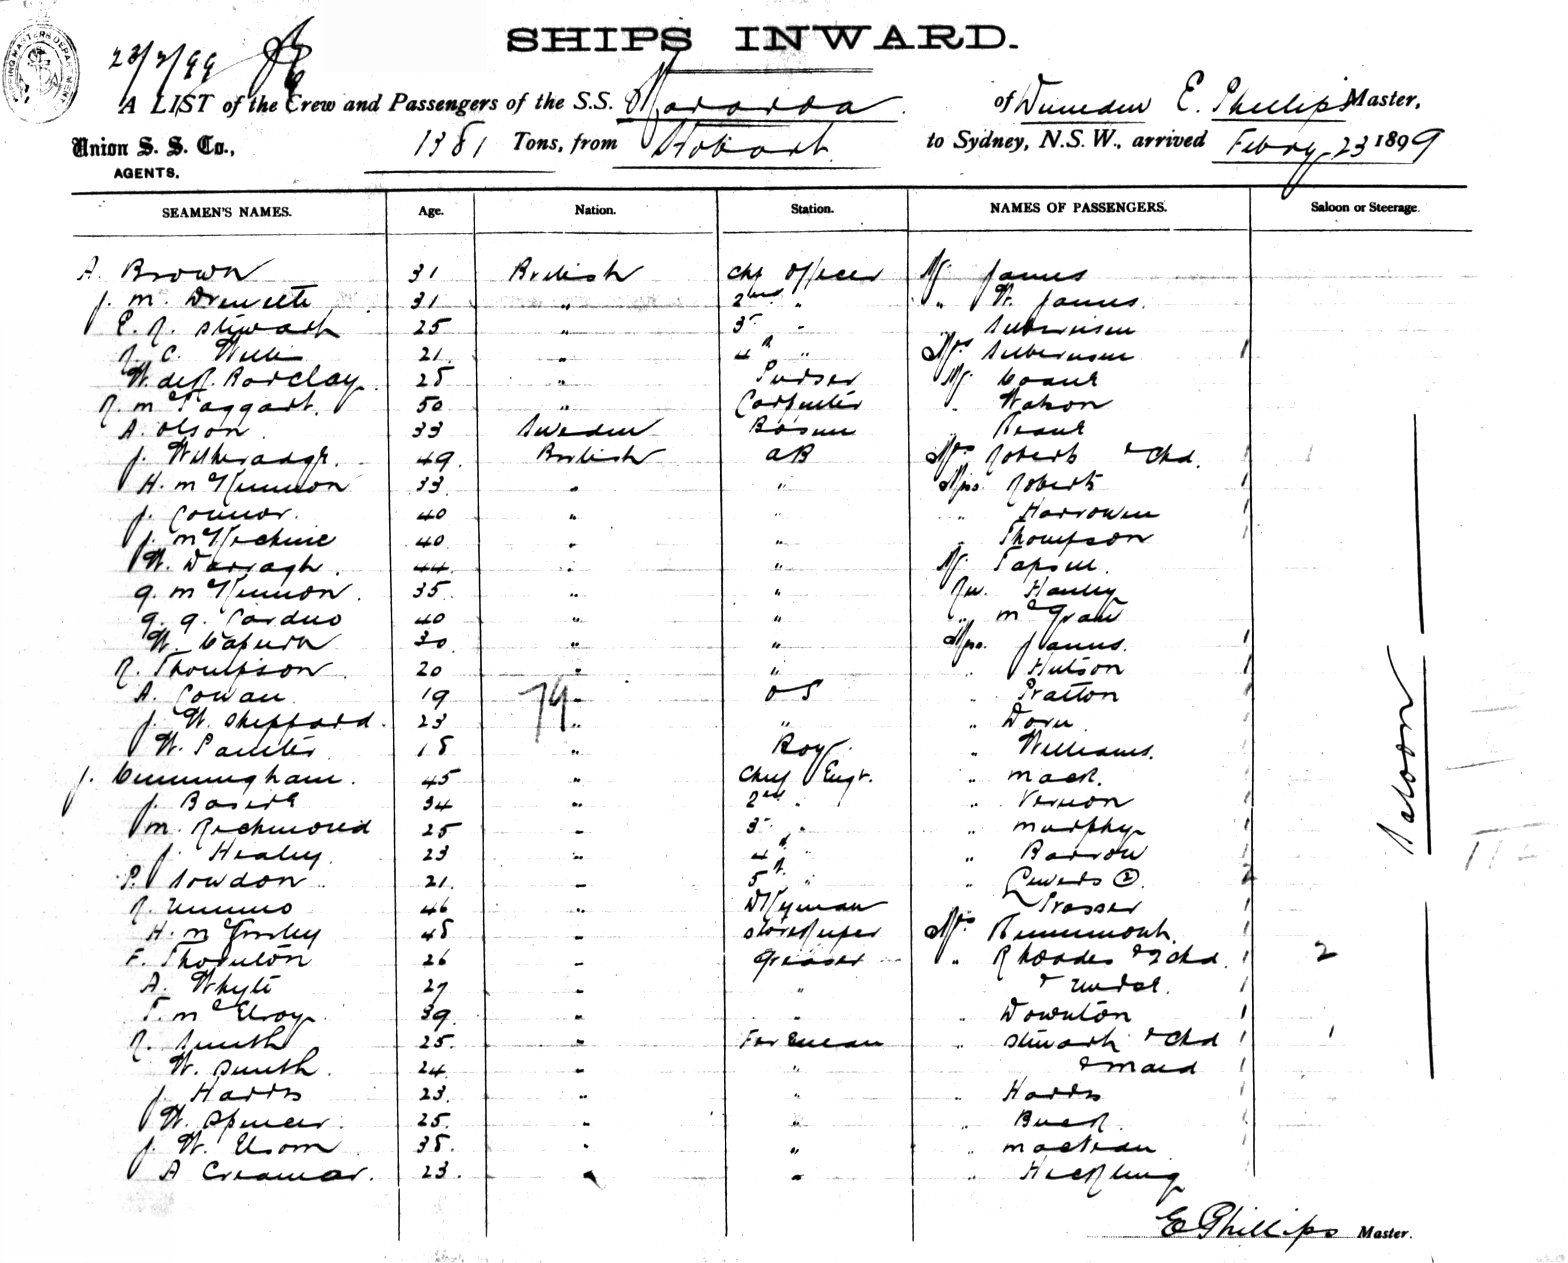 SHIPS INWARD.
23/2/99
A LIST of the Crew and Passengers of the S.S. Mararoa of Dunedin E. Phillips Master,
Union S. S. Co., AGENTS, 1381 Tons, from Hobart to Sydney, N.S.W., arrived Febry 23 1899
SEAMEN'S NAMES. Age. Nation. Station. NAMES OF PASSENGERS. Saloon or Steerage.
A. Brown 31 British Chf Officer Mr James
J. M. Drewette 31 " 2nd " " W. James.
E. R. Stewart 25 " 3rd " Silbernison
R. C. Willis 21 " 4th " Mrs Silbernison 1
W. de R. Barclay 25 " Purser Mr
R. McTaggart. 50 " Carpenter " Watson
A. Olson 33 Sweden Bosun "
J. 49 British AB Mrs Roberts & Chd. 1 1
H. McKinnon 33 " " Miss Roberts 1
J. Connor. 40 " " " 1
J. McKechnie 40 " " " Thompson 1
W. Darragh. 44 " " Mr
G. McKinnon. 35 " " Rev. Hanley
G. G. Carduo 40 " " " McGraw
W. 30 " " Miss James. 1
R. Thompson 20 " " " Hutson 1
A. Cowan 19 " OS " Pratton 1
J. W. Sheppard. 23 " " " Dorn 1
W. Painter 18 " Boy " Williams. 1
J. Cunningham. 45 " Chief Engr. " Mack. 1
J. 34 " 2nd " " Vernon 1
M. Richmond 25 " 3rd " " Murphy 1
J. Healey 23 " 4th " " Barrow 1
P. Sowdon 21 " 5th " " (2). 2
R. Nimmo 46 " Dkyman Prosser 1
H. McGinley 48 " Storekeeper Mrs 1
F. Thornton 26 " Greaser " Rhoades & 2 Chd. 1 2
A. Whyte 27 " " & Nurse. 1
T. McElroy 39 " " " Downton 1
R. Smith 25. " Foreman " Stewart & Chd 1 1
W. Smith. 24 " " & Maid 1
J. Harris 23 " " " Harris 1
W. Spencer. 25. " " " Buck 1
J. W. Elsom 38. " " " MacLean 1
A Creamar. 23. " " " Heckling 1
79
Saloon
E Phillips Master.